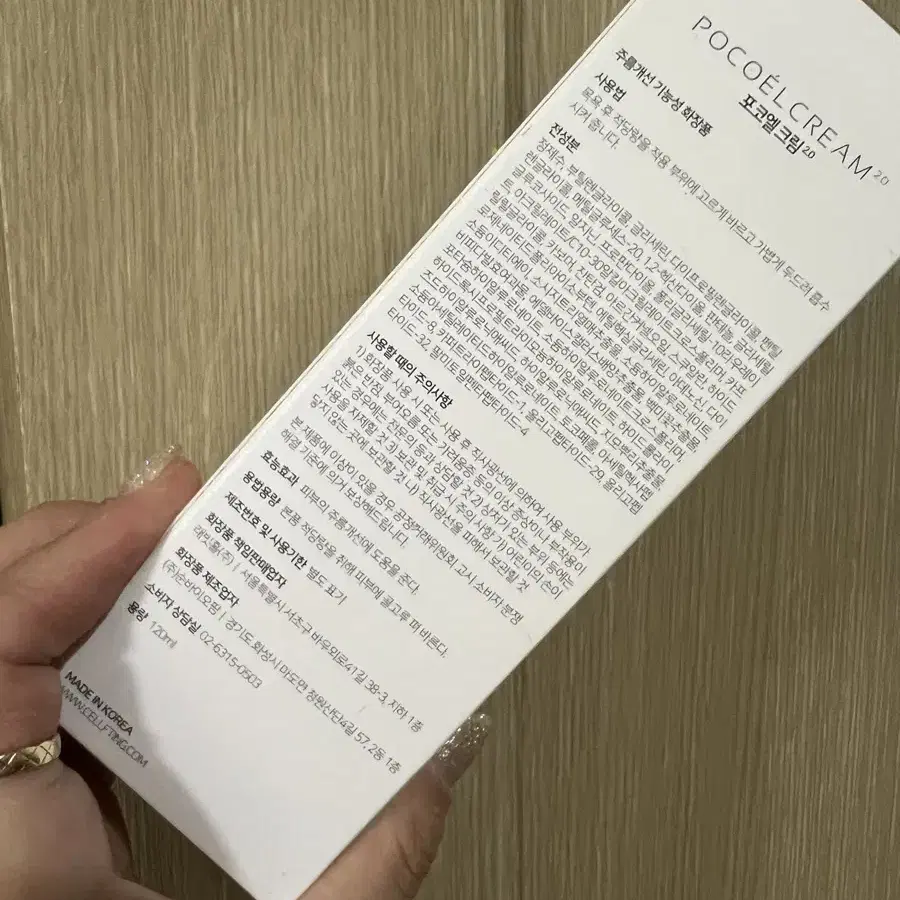 POCOÉLCREAM 2.0
포코엘 크림 2.0
주름개선 기능성 화장품
사용법
목욕 후 적당량을 적용 부위에 고르게 바르고 가볍게 두드려 흡수
시켜 줍니다.
전성분
정제수, 부틸렌글라이콜, 글리세린, 다이프로필렌글라이콜, 펜틸
렌글라이콜, 메틸글루세스-20, 1,2-헥산다이올, 판테놀, 글리세릴
글루코사이드, 알지닌, 프로판다이올, 폴리글리세릴-10라우레이
트, 아크릴레이트/C10-30알킬아크릴레이트크로스폴리머, 카프
릴릴글라이콜, 카보머, 잔탄검, 아르간커넬오일, 스쿠알란, 하이드
로제네이티드폴리아이소부텐, 에틸헥실글리세린, 아데노신, 다이
소듐이디티에이,
비피다발효여과물,
하이드록시프로필트라이모늄하이알루로네이트,
타이드-8, 카퍼트라이펩타이드-1, 올리고펩타이드-29, 올리고펩
타이드-32, 팔미토일펜타펩타이드-4
사용할 때의 주의사항
1) 화장품 사용 시 또는 사용 후 직사광선에 의하여 사용 부위가
붉은 반점, 부어오름 또는 가려움증 등의 이상 증상이나 부작용이
있는 경우에는 전문의 등과 상담할 것 2) 상처가 있는 부위 등에는
사용을 자제할 것 3) 보관 및 취급 시 주의 사항 가) 어린이의 손이
닿지 않는 곳에 보관할 것 나) 직사광선을 피해서 보관할 것
본 제품에 이상이 있을 경우 공정거래위원회 고시, 소비자 분쟁
해결 기준에 의거 보상해드립니다.
효능효과 피부의 주름개선에 도움을 준다.
용법용량 본품 적당량을 취해 피부에 골고루 펴 바른다.
제조번호 및 사용기한 별도 표기
화장품 책임판매업자
서울특별시 서초구 바우뫼로41길 38-3, 지하 1층
화장품 제조업자
경기도 화성시 마도면 청원산단4길 57, 2동 1층
소비자 상담실 02-6315-0503
용량 120ml
MADE IN KOREA
WWW.CELLIFTING.COM